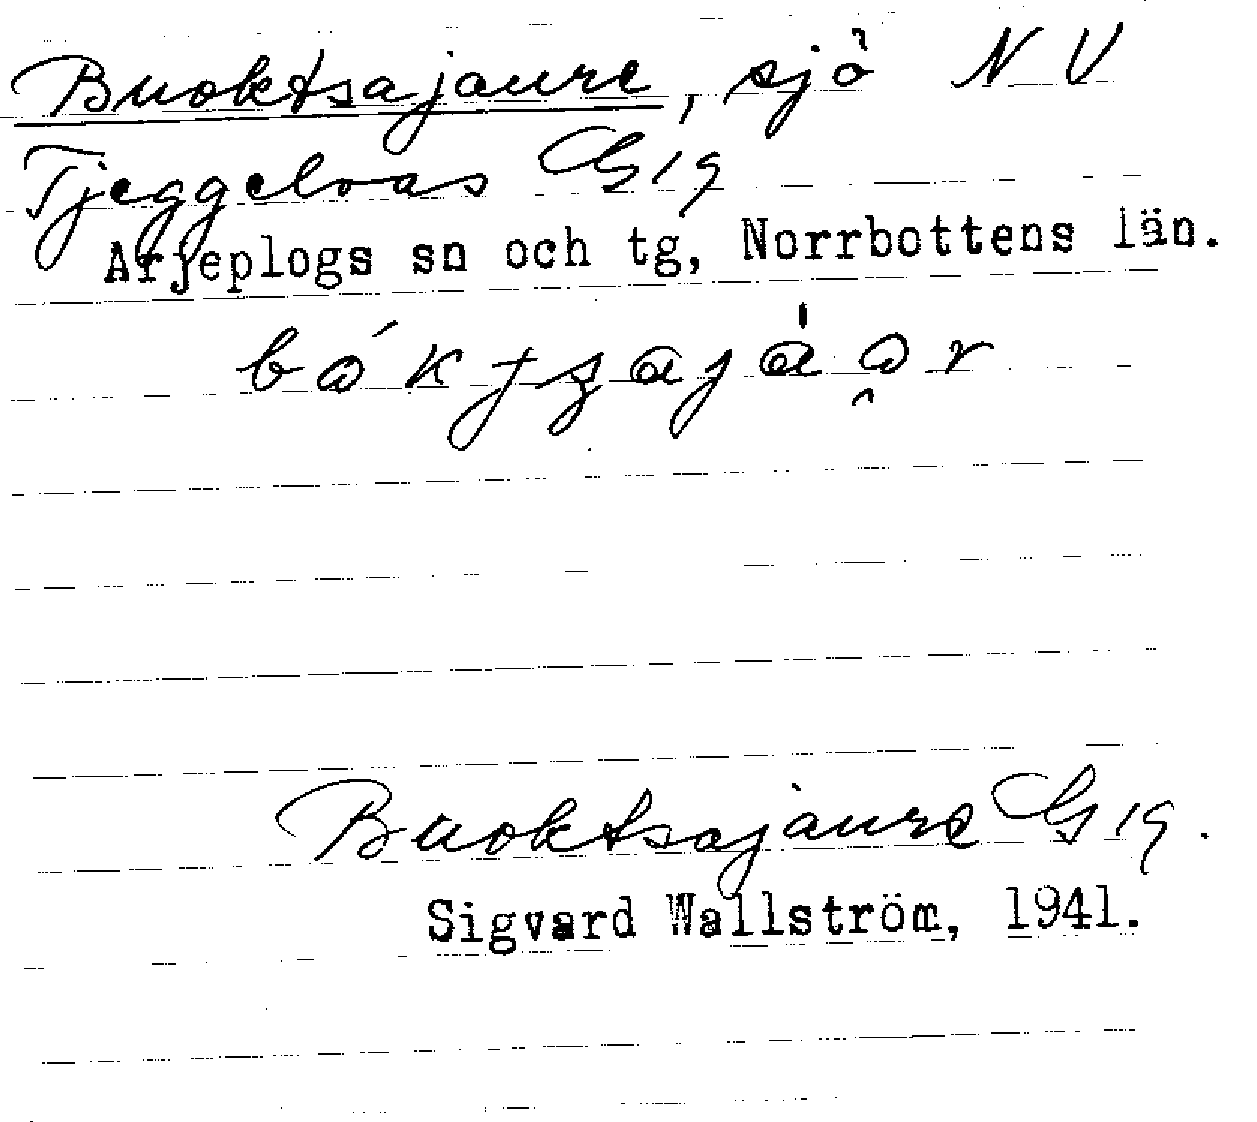 Buoktsajaure, sjö N V
Tjeggelvas G 19
Arjeplogs sn och tg, Norrbottens län.
Buoktsajaure G 19.
Sigvard Wallström, 1941.